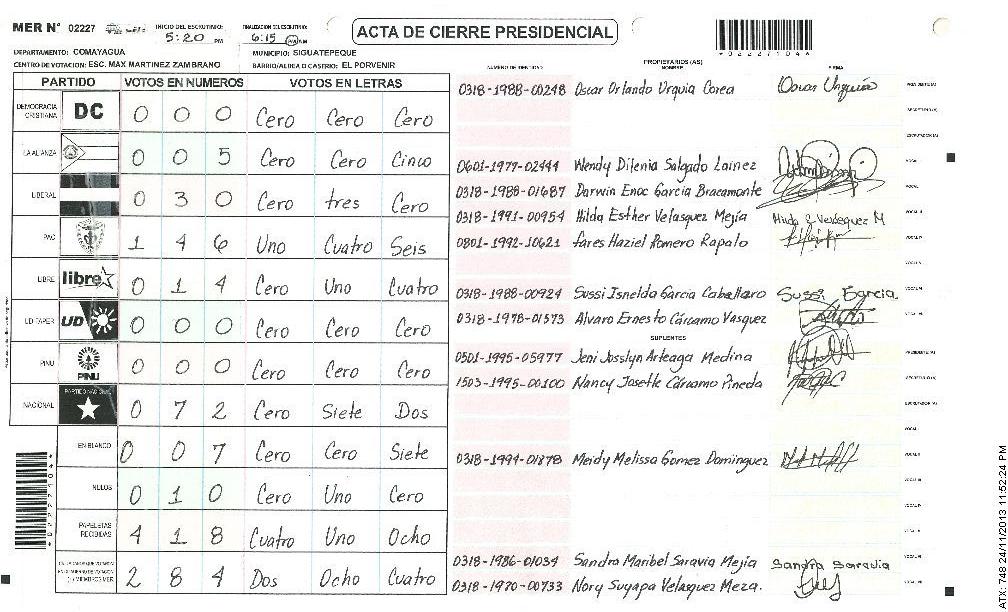 MER Nº 02227 INICIO DEL ESCRUTINIO: 5:20 PM FINALIZACION DEL ESCRUTINIO: 6:15 PM
ACTA DE CIERRE PRESIDENCIAL
*022271044*
DEPARTAMENTO: COMAYAGUA MUNICIPIO: SIGUATEPEQUE
CENTRO DE VOTACION: ESC. MAX MARTINEZ ZAMBRANO BARRIO/ALDEA O CASERIO: EL PORVENIR
PARTIDO VOTOS EN NUMEROS VOTOS EN LETRAS
DEMOCRACIA CRISTIANA DC 0 0 0 Cero Cero Cero
LA ALIANZA 0 0 5 Cero Cero Cinco
LIBERAL 0 3 0 Cero tres Cero
PAC 1 4 6 Uno Cuatro Seis
LIBRE libre 0 1 4 Cero Uno Cuatro
UD FAPER UD 0 0 0 Cero Cero Cero
PINU PINU 0 0 0 Cero Cero Cero
NACIONAL PARTIDO NACIONAL 0 7 2 Cero Siete Dos
EN BLANCO 0 0 7 Cero Cero Siete
NULOS 0 1 0 Cero Uno Cero
PAPELETAS RECIBIDAS 4 1 8 Cuatro Uno Ocho
2 8 4 Dos Ocho Cuatro
PROPIETARIOS (AS)
NUMERO DE IDENTIDAD NOMBRE FIRMA
0318-1988-00248 Oscar Orlando Urquia Corea Oscar Urquia
0601-1979-02444 Wendy Ditenia Salgado Lainez
0318-1988-01687 Darwin Enoc Garcia Bracamonte
0318-1991-00954 Hilda Esther Velasquez Mejía Hilda E Velásquez M
0801-1992-10621 fares Haziel Romero Rapalo
0318-1988-00924 Sussi Isnelda Garcia Caballaro Sussi Garcia
0318-1978-01573 Alvaro Ernesto Cárcamo Vasquez
SUPLENTES
0501-1995-05977 Jeni Josslyn Arteaga Medina
1503-1995-00100 Nancy Josette Cárcamo Pineda
0318-1994-01878 Meidy Melissa Gomez Dominguez
0318-1986-01034 Sandra Maribel Saravia Mejía Sandra Saravia
0318-1970-00733 Nory Suyapa Velasquez Meza.
ATX-748 24/11/2013 11:52:24 PM